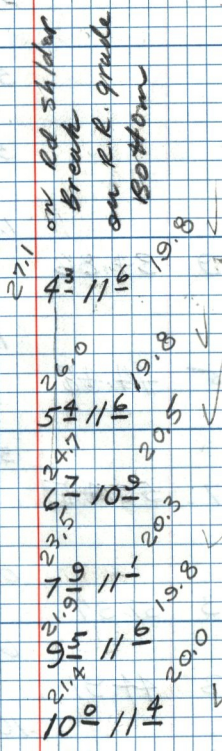 on Rd shlder
Break
on R.R. grade
Bottom
27.1 19.8 ✓
4³ 11⁶
26.0 19.8 ✓
5⁴ 11⁶
24.7 20.5 ✓
6⁷ 10⁹
23.5 20.3 ✓
7⁹ 11¹
21.9 19.8
9⁵ 11⁶
21.4 20.0 ✓
10⁰ 11⁴